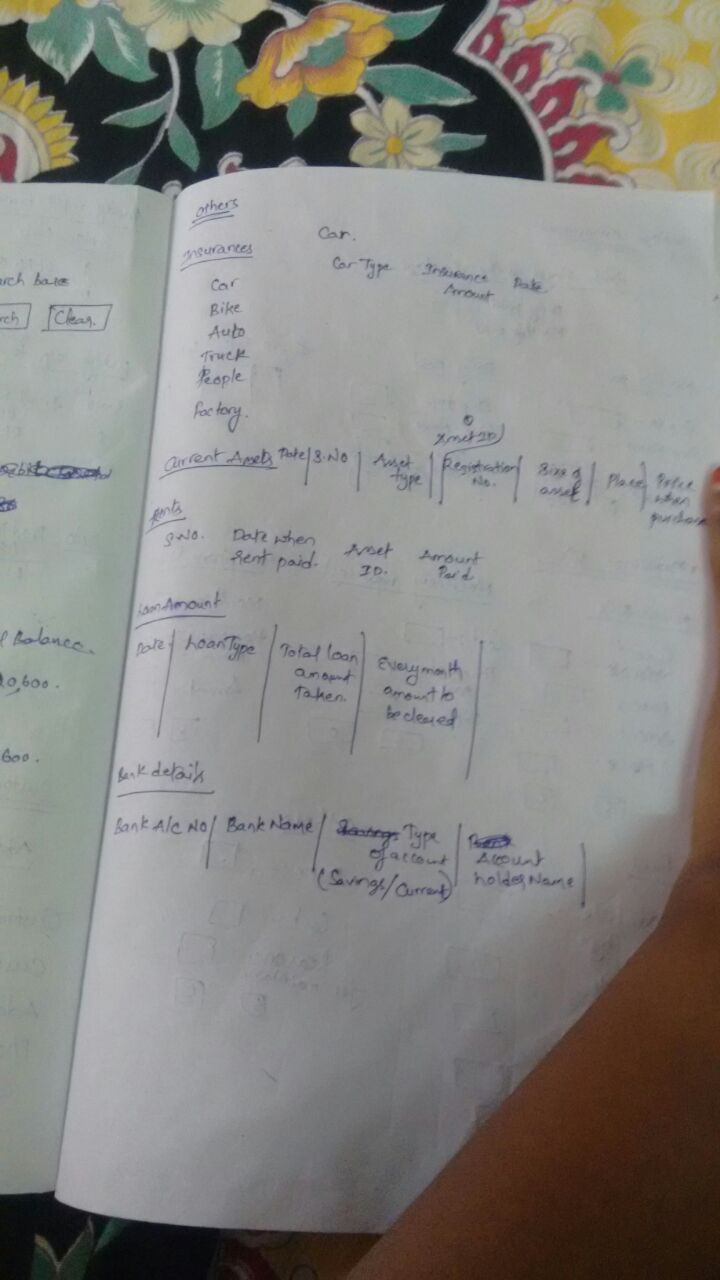 Others
Insurances
Car.
Car Type Insurance Amount Date
Car
Bike
Auto
Truck
People
Factory.
Asset ID
Current Assets Date S.No Asset type Registration No. Size of asset Place Price when purchase
Rents
S.No. Date when rent paid. Asset ID. Amount Paid
Loan Amount
Date Loan Type Total loan amount Taken Every month amount to be cleared
Bank details
Bank A/C No Bank Name Type of account (Savings/Current) Account holder Name
Clear.
Balance.
600.